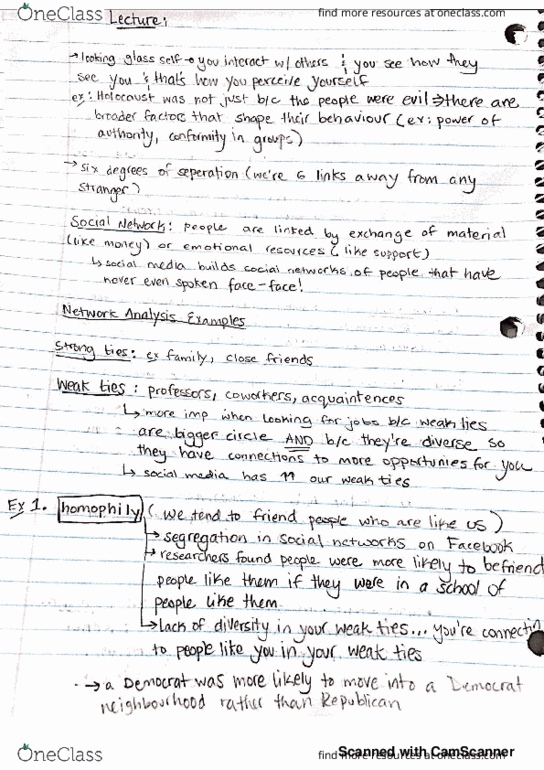 OneClass
find more resources at oneclass.com
Lecture:
→ looking glass self → you interact w/ others & you see how they
see you & thats how you perceive yourself
ex: Holocaust was not just b/c the people were evil ⇒ there are
broader factors that shape their behaviour (ex: power of
authority, conformity in groups)
→ six degrees of seperation (we're 6 links away from any
stranger)
Social Network: people are linked by exchange of material
(like money) or emotional resources (like support)
↳ social media builds social networks of people that have
never even spoken face-face!
Network Analysis Examples
Strong ties: ex family, close friends
Weak ties: professors, coworkers, acquaintences
↳ more imp when looking for jobs b/c weak ties
are bigger circle AND b/c they're diverse so
they have connections to more opportunies for you
↳ social media has ↑↑ our weak ties
Ex 1. homophily (we tend to friend people who are like us)
↳ segregation in social networks on Facebook
↳ researchers found people were more likely to befriend
people like them if they were in a school of
people like them.
↳ lack of diversity in your weak ties... you're connectin
to people like you in your weak ties
→ a Democrat was more likely to move into a Democrat
neighbourhood rather than Republican
OneClass
find more resources at oneclass.com
Scanned with CamScanner